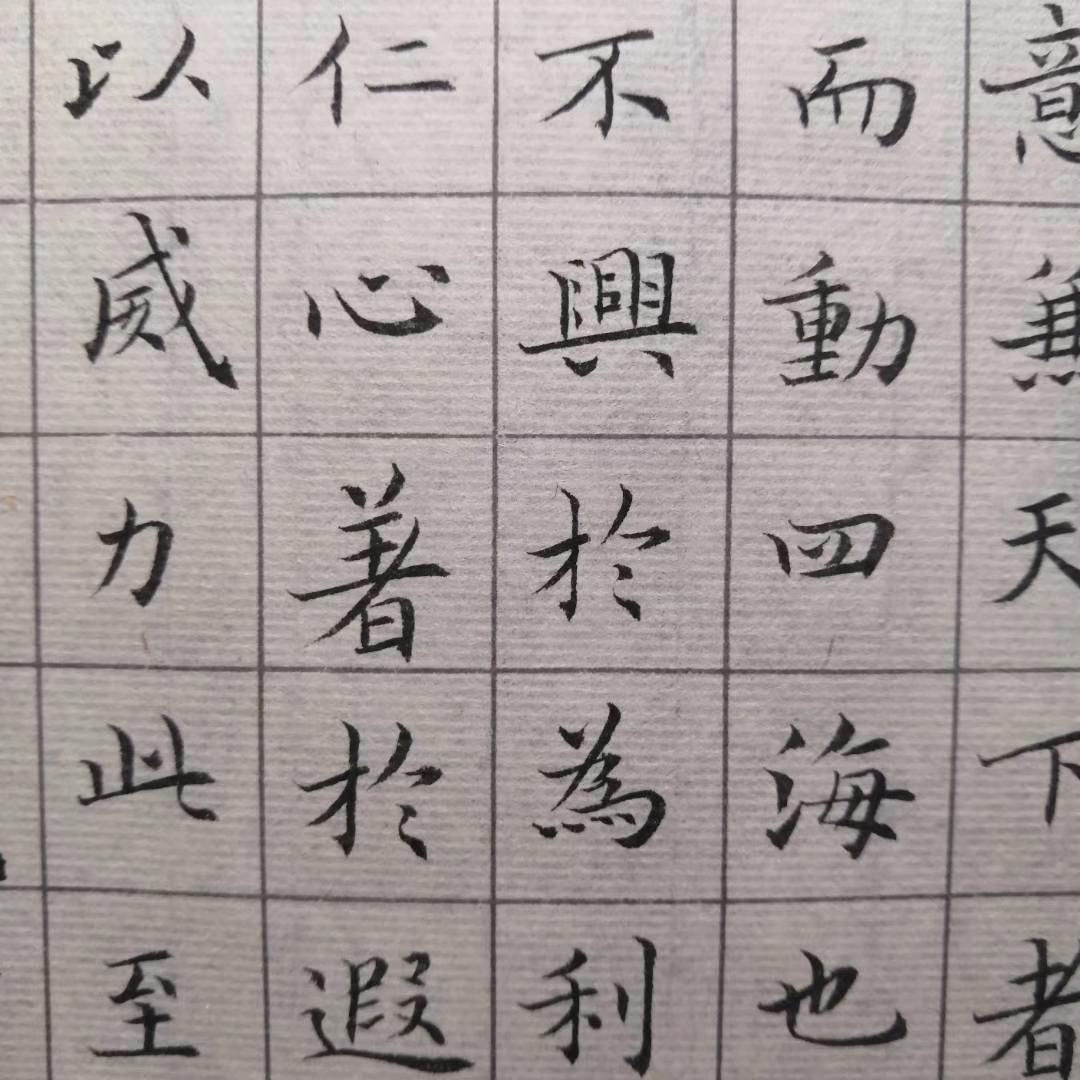 意兼天下者
而動四海也
不興於為利
仁心著於遐
以威力此至